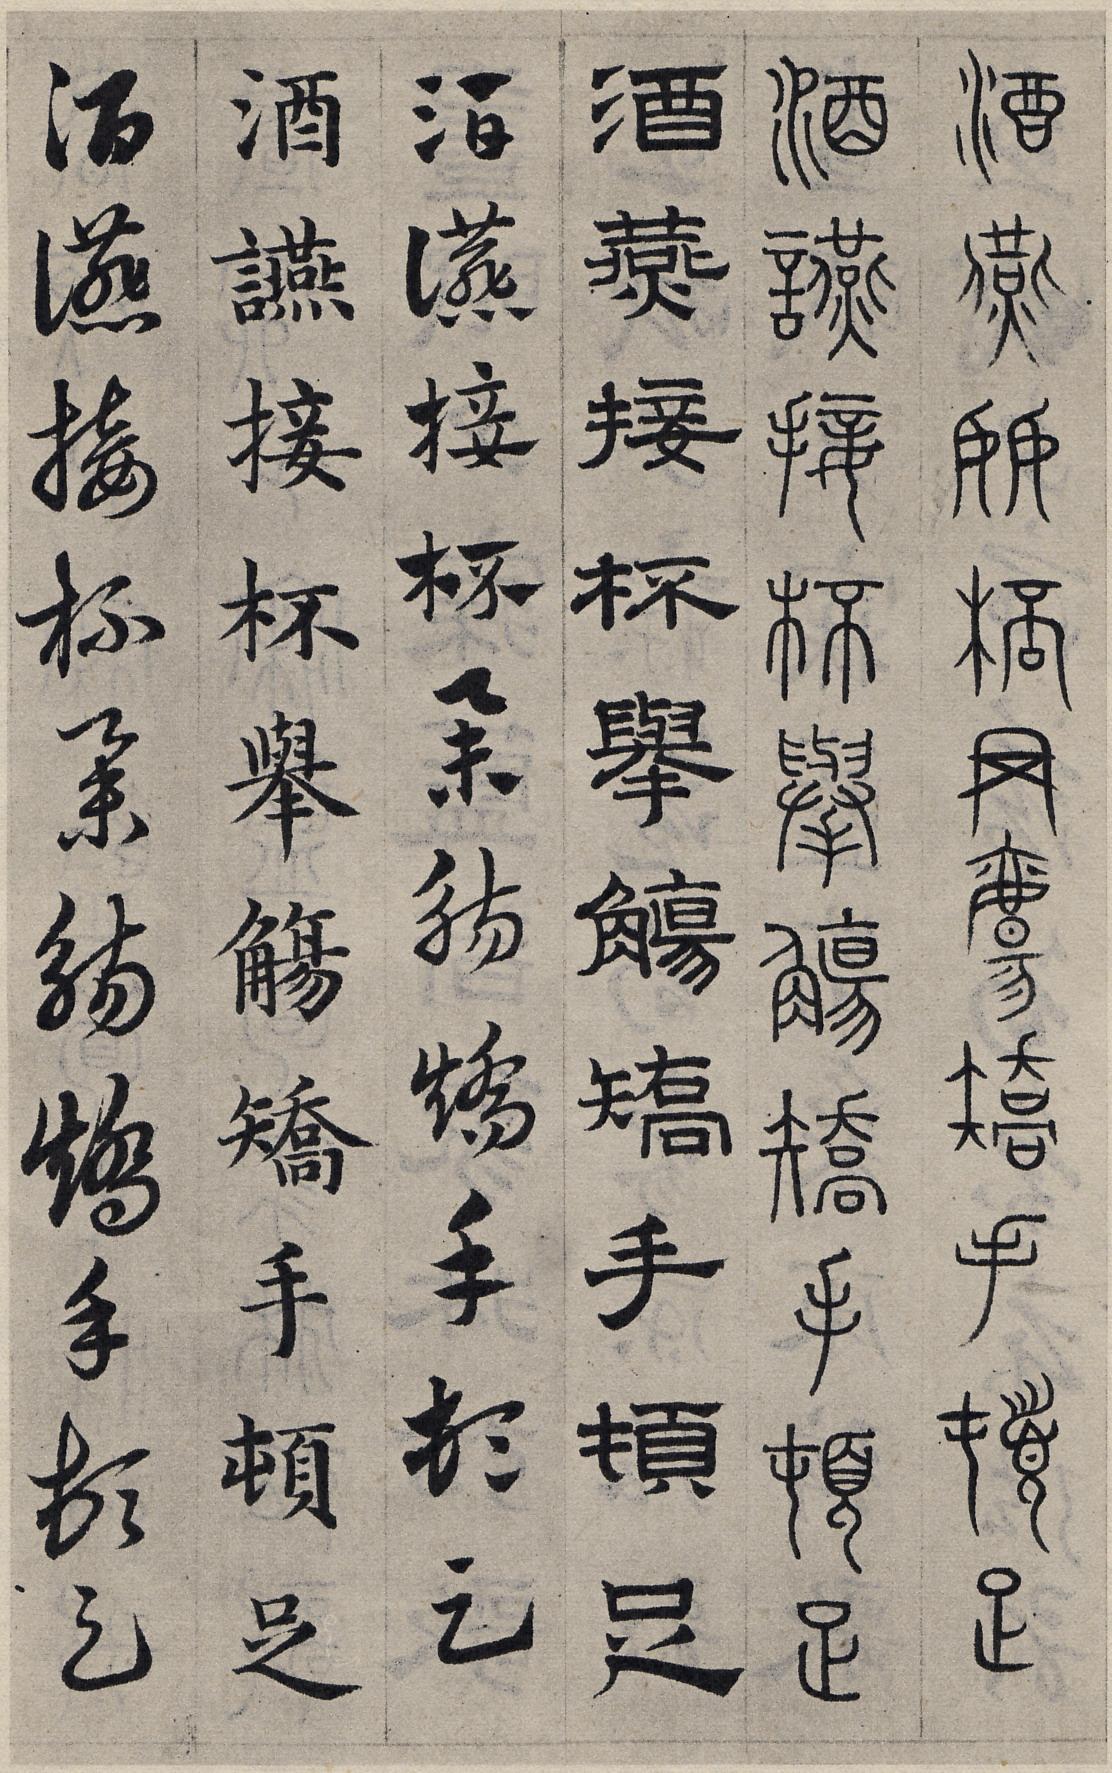 酒燕接杯舉觴矯手頓足
酒讌接杯舉觴矯手頓足
酒燕接杯舉觴矯手頓足
酒讌接杯舉觴矯手頓足
酒讌接杯舉觴矯手頓足
酒讌接杯舉觴矯手頓足